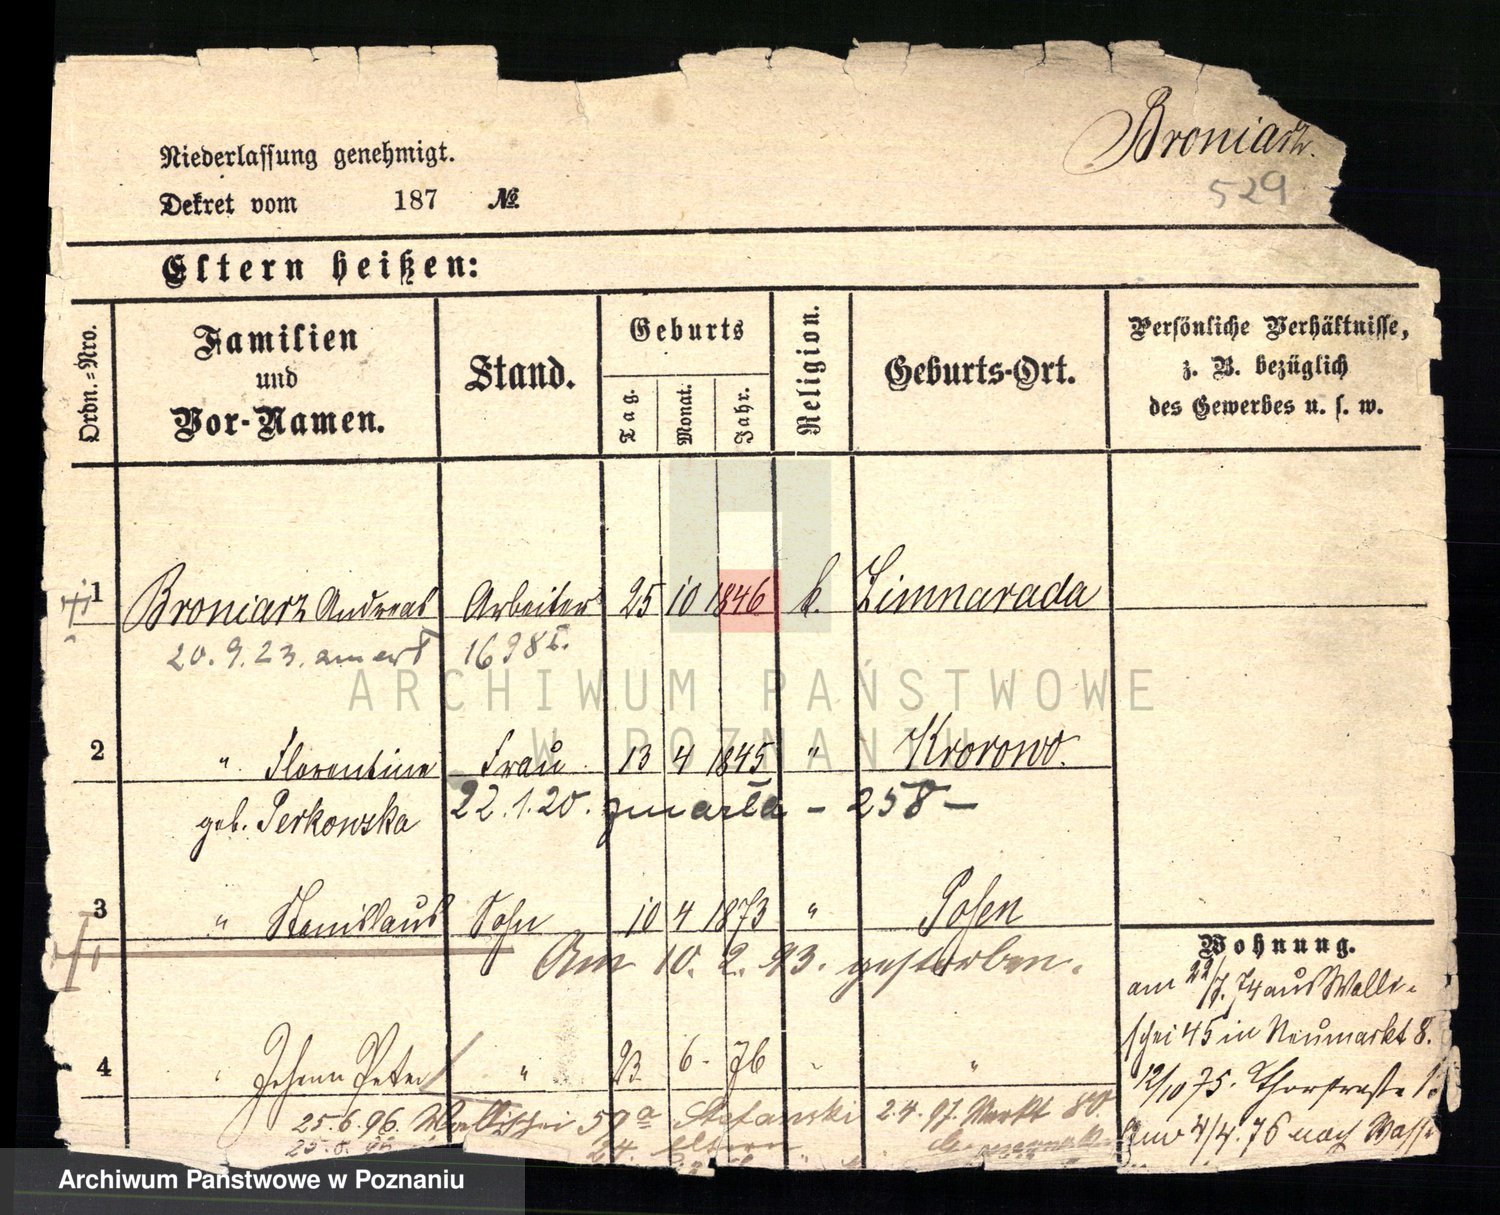 Broniarz.
529
Niederlassung genehmigt.
Dekret vom 187 №
Eltern heißen:
Ordn.=Nro.
Familien und Vor-Namen.
Stand.
Geburts
Tag. Monat. Jahr.
Religion.
Geburts-Ort.
Persönliche Verhältnisse,
z. B. bezüglich
des Gewerbes u. s. w.
1 Broniarz Andreas Arbeiter 25 10 1846 k. Zimnarada
20.9.23. 
2 " Florentine Frau 13 4 1845 " Krorowo.
geb. Perkowska 22.1.20. zmarła – 258 –
3 " Stanislaus Sohn 10 4 1873 " Posen
Am 10. 2. 93. gestorben.
4 Johann Peter " 23 6. 76 "
25.6.96. Wallischei 59a Stefanski 2.4.97. Markt 80.
24. Eltern
Wohnung.
am 22/7. 74 aus Walli-
schei 45 in Neumarkt 8.
12/10 75. Thorstraße
4/4. 76 nach
ARCHIWUM PAŃSTWOWE
W POZNANIU
Archiwum Państwowe w Poznaniu